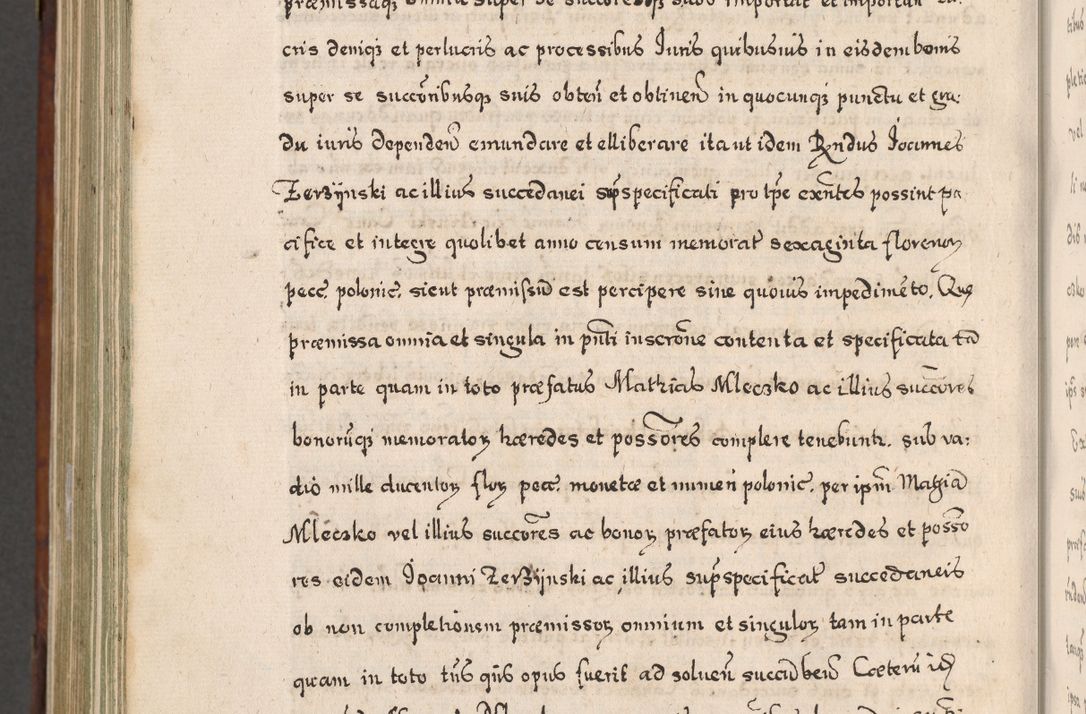 præmissaq omnia super se successoresq suos importat et importan lu:
cris deniqȝ et perlucris ac processibus Iuris quibusuis in eisdem bonis
super se succōribusqȝ suis obten̄ et obtinen̄ in quocunqȝ punctu et gra:
du iuris dependen̄ emundare et elliberare ita ut idem Rndus Ioannes
Zerzÿnski ac illius succedanei sup̄specificati pro tp̄e exn̄tes possint pa
cifice et integre quolibet anno censum memorat̄ sexaginta florenoꝝ
pecc. polonic. sicut præmissūm est percipere sine quouis impedimēto. Quę
præmissa omnia et singula in pn̄ti inscrōne contenta et specificata tā
in parte quam in toto præfatus Mathias Mleczko ac illius succōres
bonorūqȝ memoratoꝝ hæredes et possōres complere tenebuntr. sub va:
dio mille ducentoꝝ floꝝ pecc. monetæ et numeri polonic. per ipm̄ Mathiā
Mleczko vel illius succōres ac bonoꝝ præfatoꝝ eius hæredes et possō
res eidem Ioanni Zerzÿnski ac illius sup̄specificat̄ succedaneis
ob non completionem præmissoꝝ omnium et singuloꝝ tam in parte
quam in toto tn̄s qn̄s opus fuerit ad soluen̄ succūben̄ Cæterū id